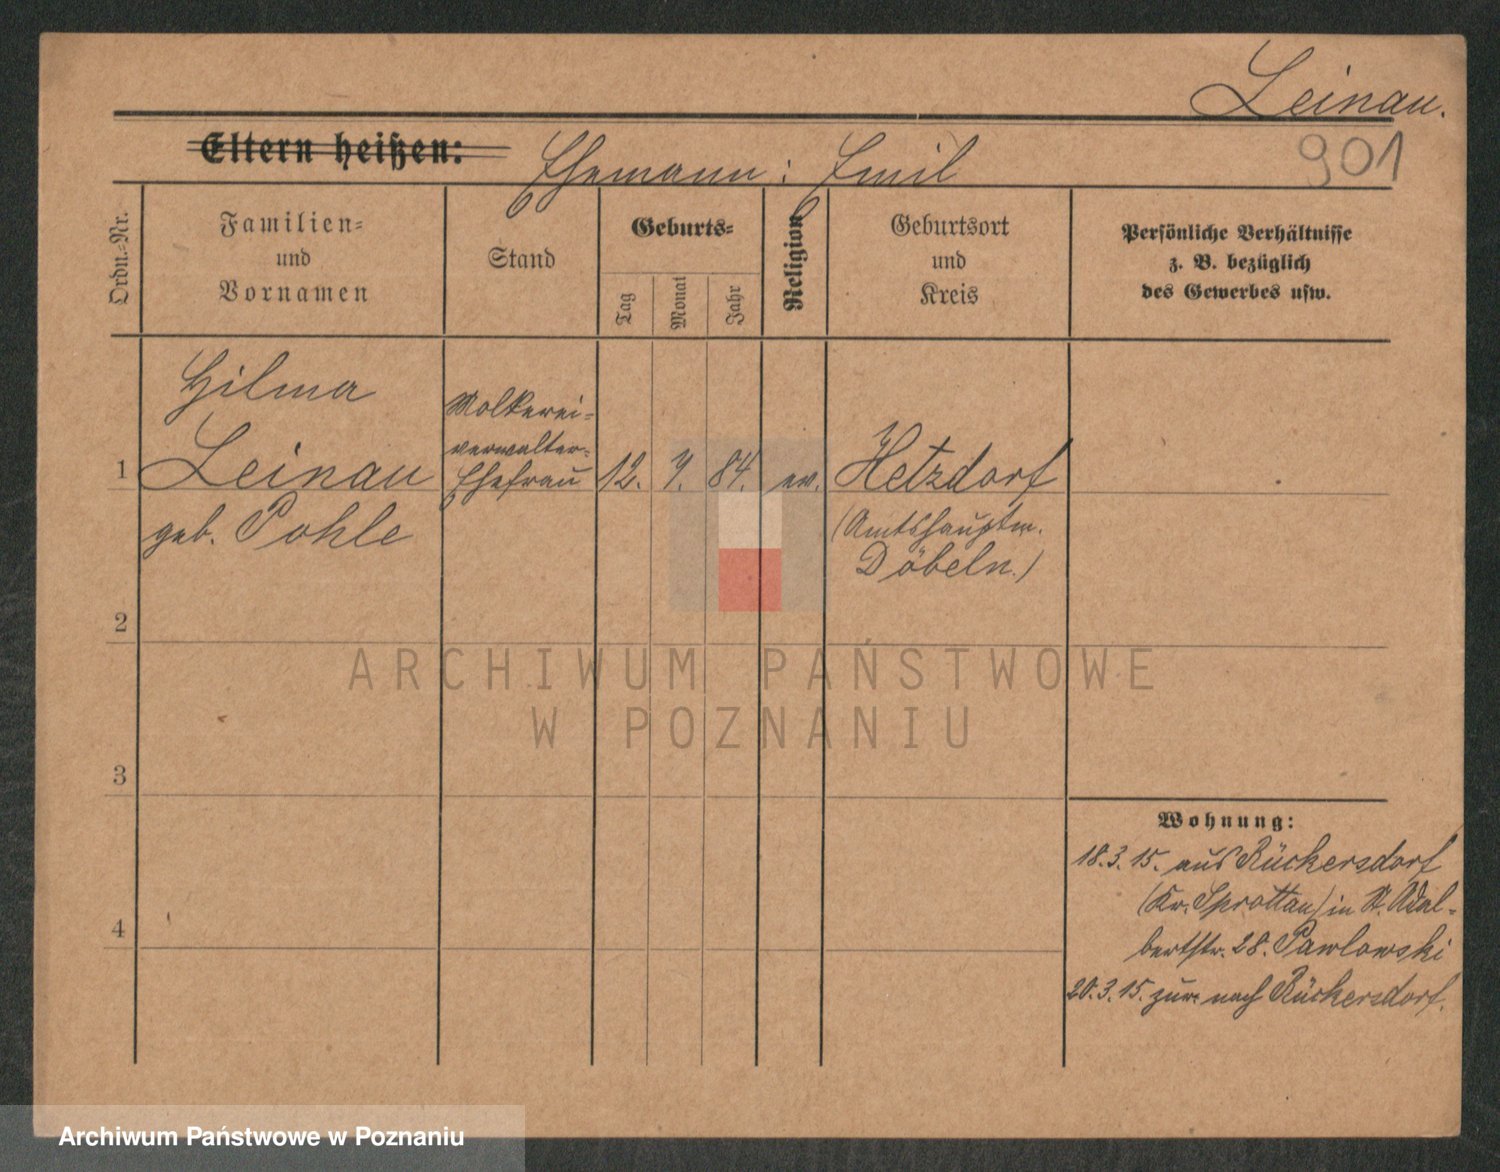 Leinau.
901
Eltern heißen: Ehemann: Emil
Ordn.-Nr.
Familien-
und
Vornamen
Stand
Geburts-
Tag
Monat
Jahr
Religion
Geburtsort
und
Kreis
Persönliche Verhältnisse
z. B. bezüglich
des Gewerbes usw.
1
Hilma
Leinau
geb. Pohle
Molkerei-
verwalter-
Ehefrau
12. 7. 84. ev.
Hetzdorf
(Amtshauptm.
Döbeln.)
2
3
4
Wohnung:
18.3.15. aus Rückersdorf
(Kr. Sprottau) in St. Adal-
bertstr. 28. Pawlowski
20.3.15. zur. nach Rückersdorf.
ARCHIWUM PAŃSTWOWE
W POZNANIU
Archiwum Państwowe w Poznaniu